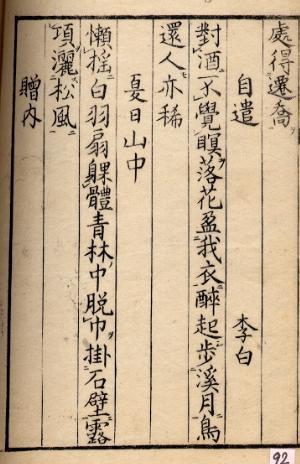 處得遷喬
自遣　李白
對酒不覺瞑落花盈我衣醉起步溪月鳥
還人亦稀
夏日山中
懶搖白羽扇躶體青林中脫巾掛石壁露
頂灑松風
贈内
92